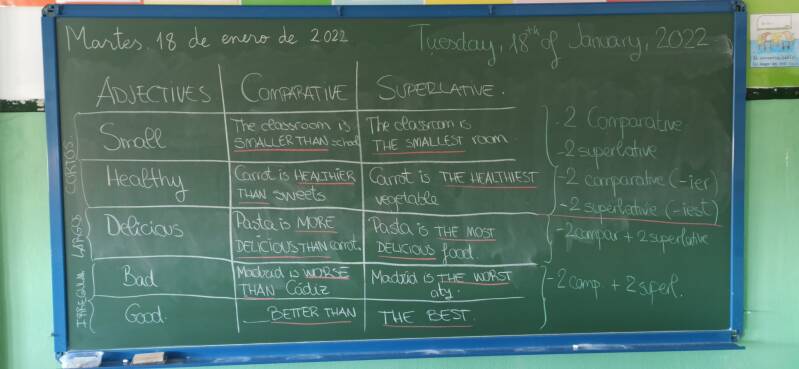 Martes, 18 de enero de 2022
Tuesday, 18th of January, 2022
ADJECTIVES
COMPARATIVE
SUPERLATIVE.
CORTOS
Small
The classroom is
SMALLER THAN school
The classroom is
THE SMALLEST room.
Healthy
Carrot is HEALTHIER
THAN sweets
Carrot is THE HEALTHIEST
vegetable
LARGOS
Delicious
Pasta is MORE
DELICIOUS THAN carrot.
Pasta is THE MOST
DELICIOUS food.
IRREGULAR
Bad
Madrid is WORSE
THAN Cádiz
Madrid is THE WORST
city.
Good
BETTER THAN
THE BEST.
-2 Comparative
-2 superlative
-2 comparative (-ier)
-2 superlative (-iest)
-2 compar + 2 superlative
-2 comp. + 2 superl.